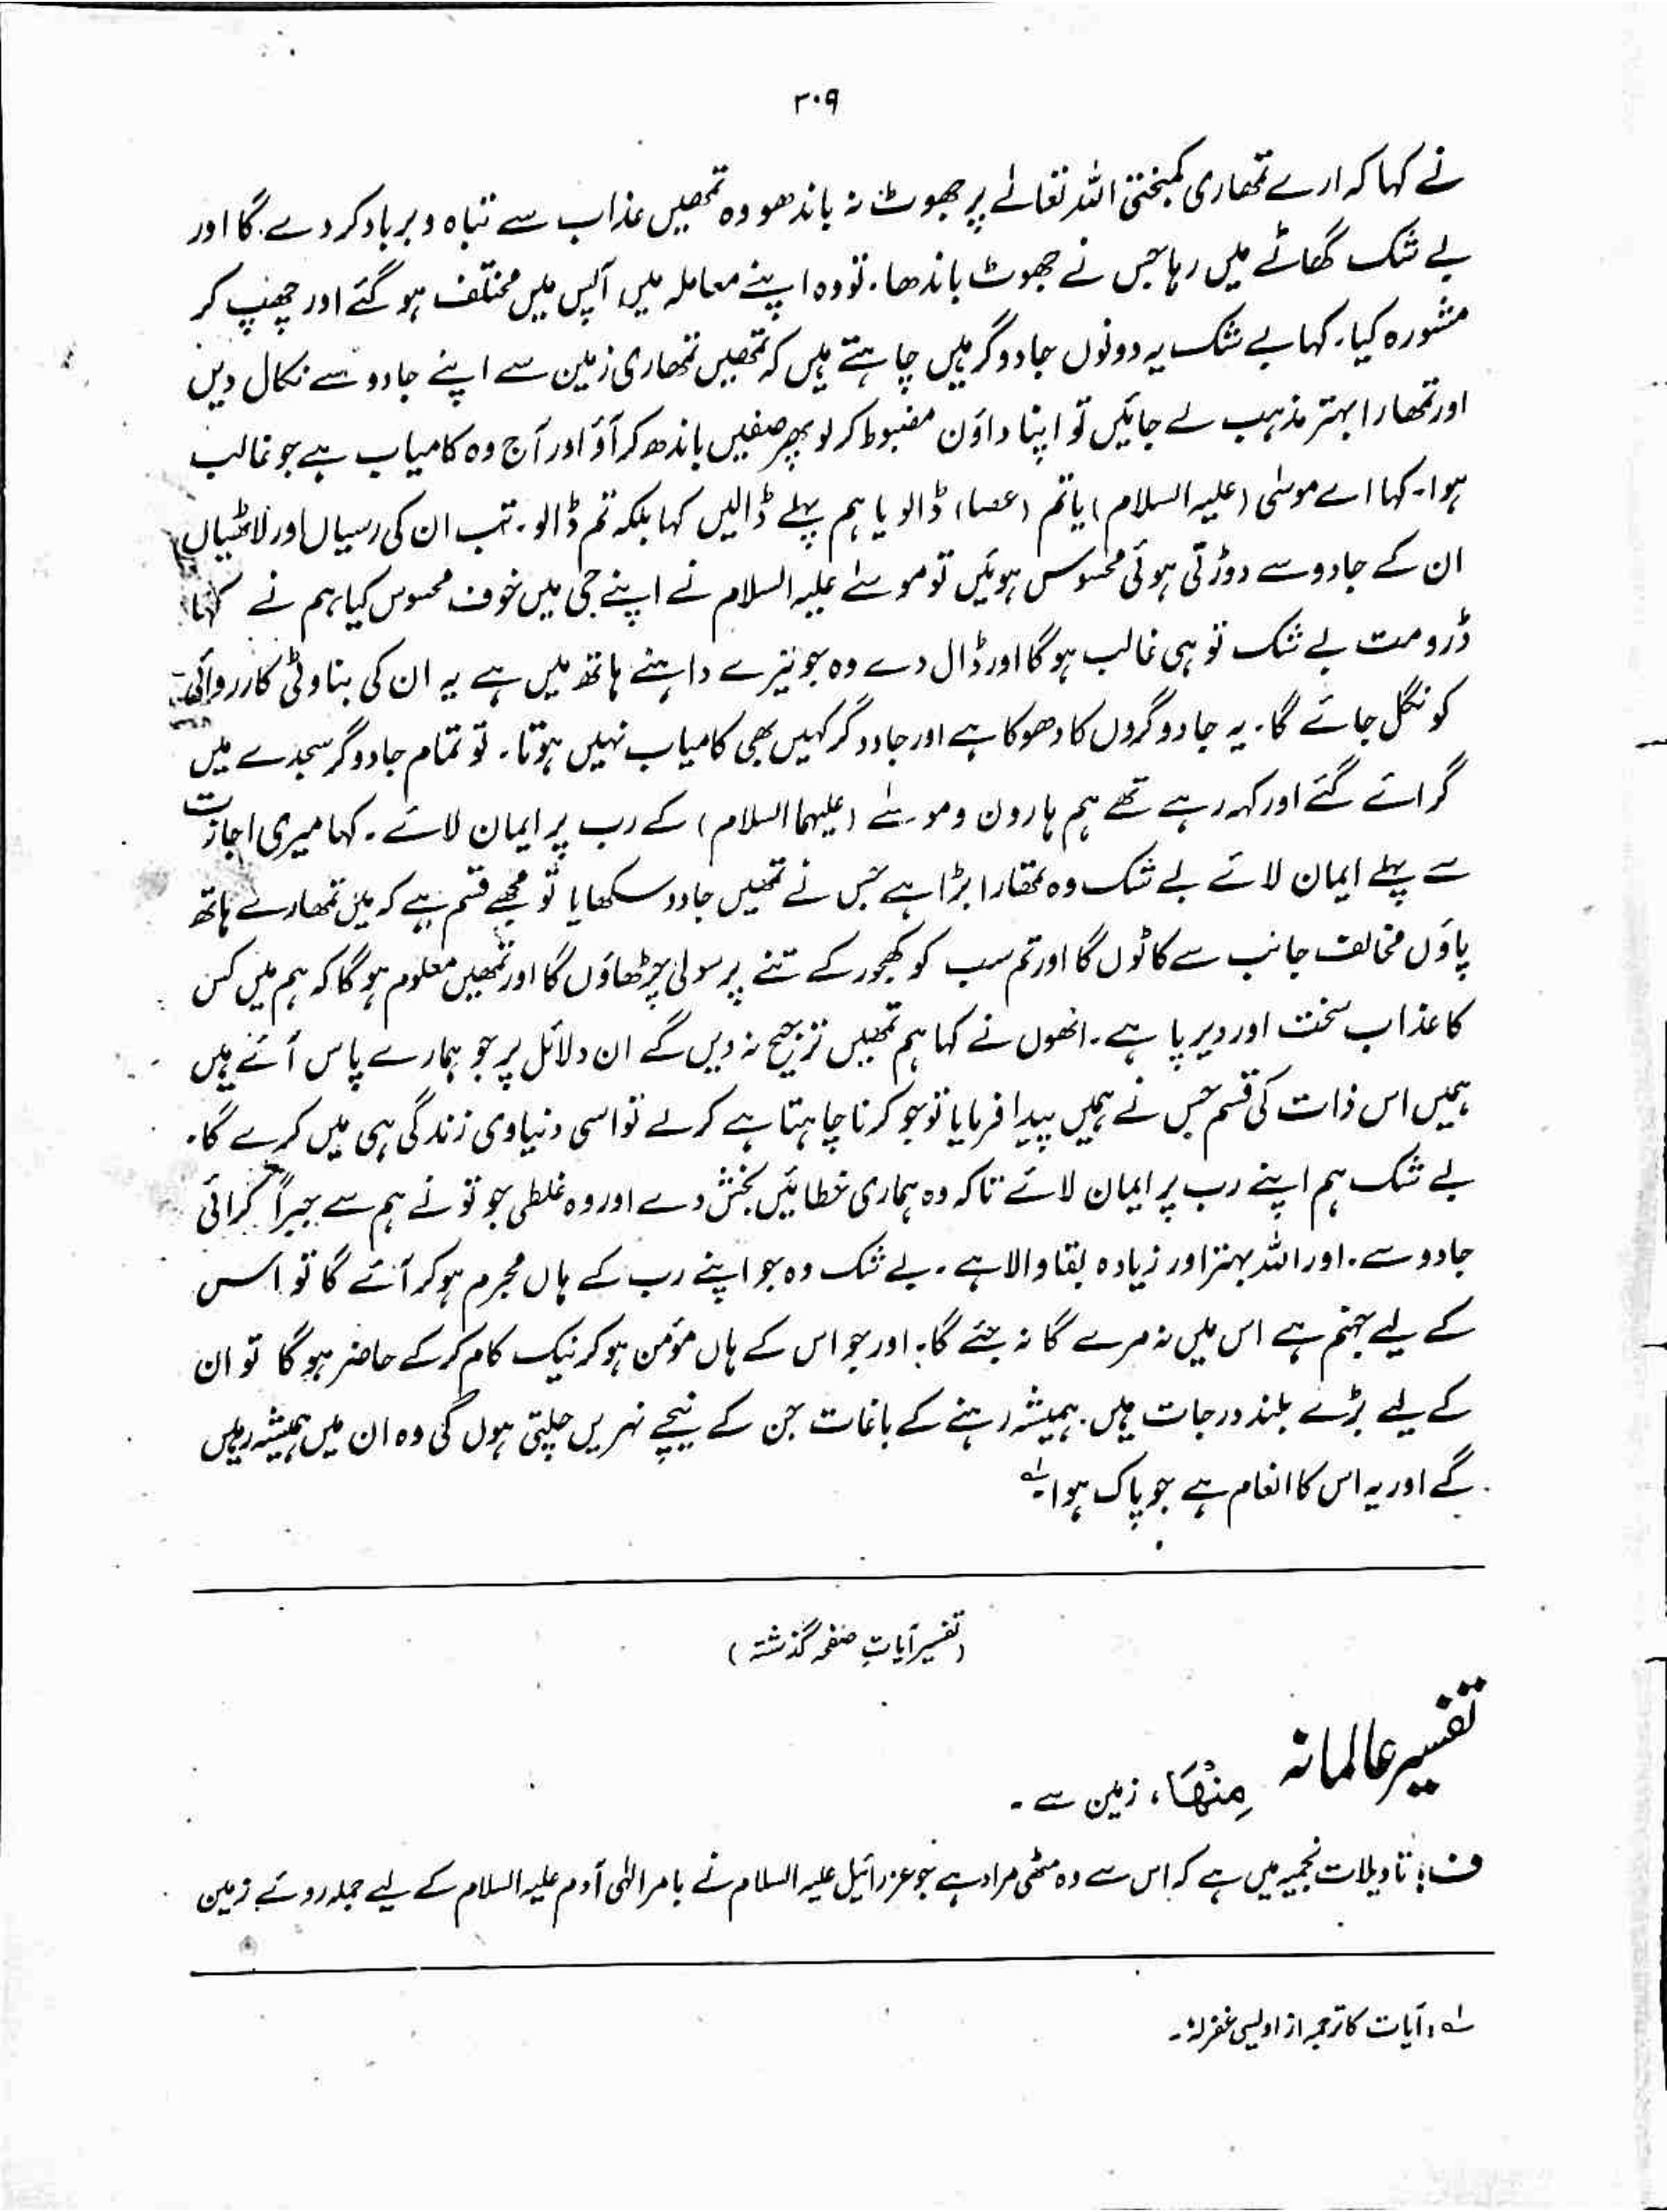 ۳۰۹
نے کہا کہ ارے تمھاری کمبختی اللہ تعالےٰ پر جھوٹ نہ باندھو وہ تمھیں عذاب سے تباہ و برباد کر دے گا اور
بے شک گھاٹے میں رہا جس نے جھوٹ باندھا۔ تو وہ اپنے معاملہ میں آپس میں مختلف ہو گئے اور چھپ کر
مشورہ کیا۔ کہا بے شک یہ دونوں جادوگر ہیں چاہتے ہیں کہ تمھیں تمھاری زمین سے اپنے جادو سے نکال دیں
اور تمھارا بہتر مذہب لے جائیں تو اپنا داؤں مضبوط کر لو پھر صفیں باندھ کر آؤ اور آج وہ کامیاب ہے جو غالب
ہوا۔ کہا اے موسٰی (علیہ السلام) یا تم (عصا) ڈالو یا ہم پہلے ڈالیں کہا بلکہ تم ڈالو۔ تب ان کی رسیاں اور لاٹھیاں
ان کے جادو سے دوڑتی ہوئی محسوس ہوئیں تو موسےٰ علیہ السلام نے اپنے جی میں خوف محسوس کیا ہم نے کہا
ڈرو مت بے شک تو ہی غالب ہو گا اور ڈال دے وہ جو تیرے داہنے ہاتھ میں ہے یہ ان کی بناوٹی کارروائی
کو نگل جائے گا۔ یہ جادوگروں کا دھوکا ہے اور جادوگر کہیں بھی کامیاب نہیں ہوتا۔ تو تمام جادوگر سجدے میں
گرائے گئے اور کہہ رہے تھے ہم ہارون و موسےٰ (علیہما السلام) کے رب پر ایمان لائے۔ کہا میری اجازت
سے پہلے ایمان لائے بے شک وہ تمھارا بڑا ہے جس نے تمھیں جادو سکھایا تو مجھے قسم ہے کہ میں تمھارے ہاتھ
پاؤں مخالف جانب سے کاٹوں گا اور تم سب کو کھجور کے تنے پر سولی چڑھاؤں گا اور تمھیں معلوم ہو گا کہ ہم میں کس
کا عذاب سخت اور دیرپا ہے۔ انھوں نے کہا ہم تمھیں ترجیح نہ دیں گے ان دلائل پر جو ہمارے پاس آئے ہیں
ہمیں اس ذات کی قسم جس نے ہمیں پیدا فرمایا تو جو کرنا چاہتا ہے کر لے تو اسی دنیاوی زندگی ہی میں کرے گا۔
بے شک ہم اپنے رب پر ایمان لائے تاکہ وہ ہماری خطائیں بخش دے اور وہ غلطی جو تو نے ہم سے جبراً کرائی
جادو سے۔ اور اللہ بہتر اور زیادہ بقا والا ہے۔ بے شک وہ جو اپنے رب کے ہاں مجرم ہو کر آئے گا تو اس
کے لیے جہنم ہے اس میں نہ مرے گا نہ جئے گا۔ اور جو اس کے ہاں مؤمن ہو کر نیک کام کر کے حاضر ہو گا تو ان
کے لیے بڑے بلند درجات ہیں۔ ہمیشہ رہنے کے باغات جن کے نیچے نہریں چلتی ہوں گی وہ ان میں ہمیشہ رہیں
گے اور یہ اس کا انعام ہے جو پاک ہوا۔ لہ
(تفسیر آیاتِ صفحہ گذشتہ)
تفسیر عالمانہ مِنْهَا، زمین سے۔
ف: تاویلات نجمیہ میں ہے کہ اس سے وہ مٹھی مراد ہے جو عزرائیل علیہ السلام نے بامر الٰہی آدم علیہ السلام کے لیے جملہ روئے زمین
لہ: آیات کا ترجمہ از اویسی غفرلہٗ۔